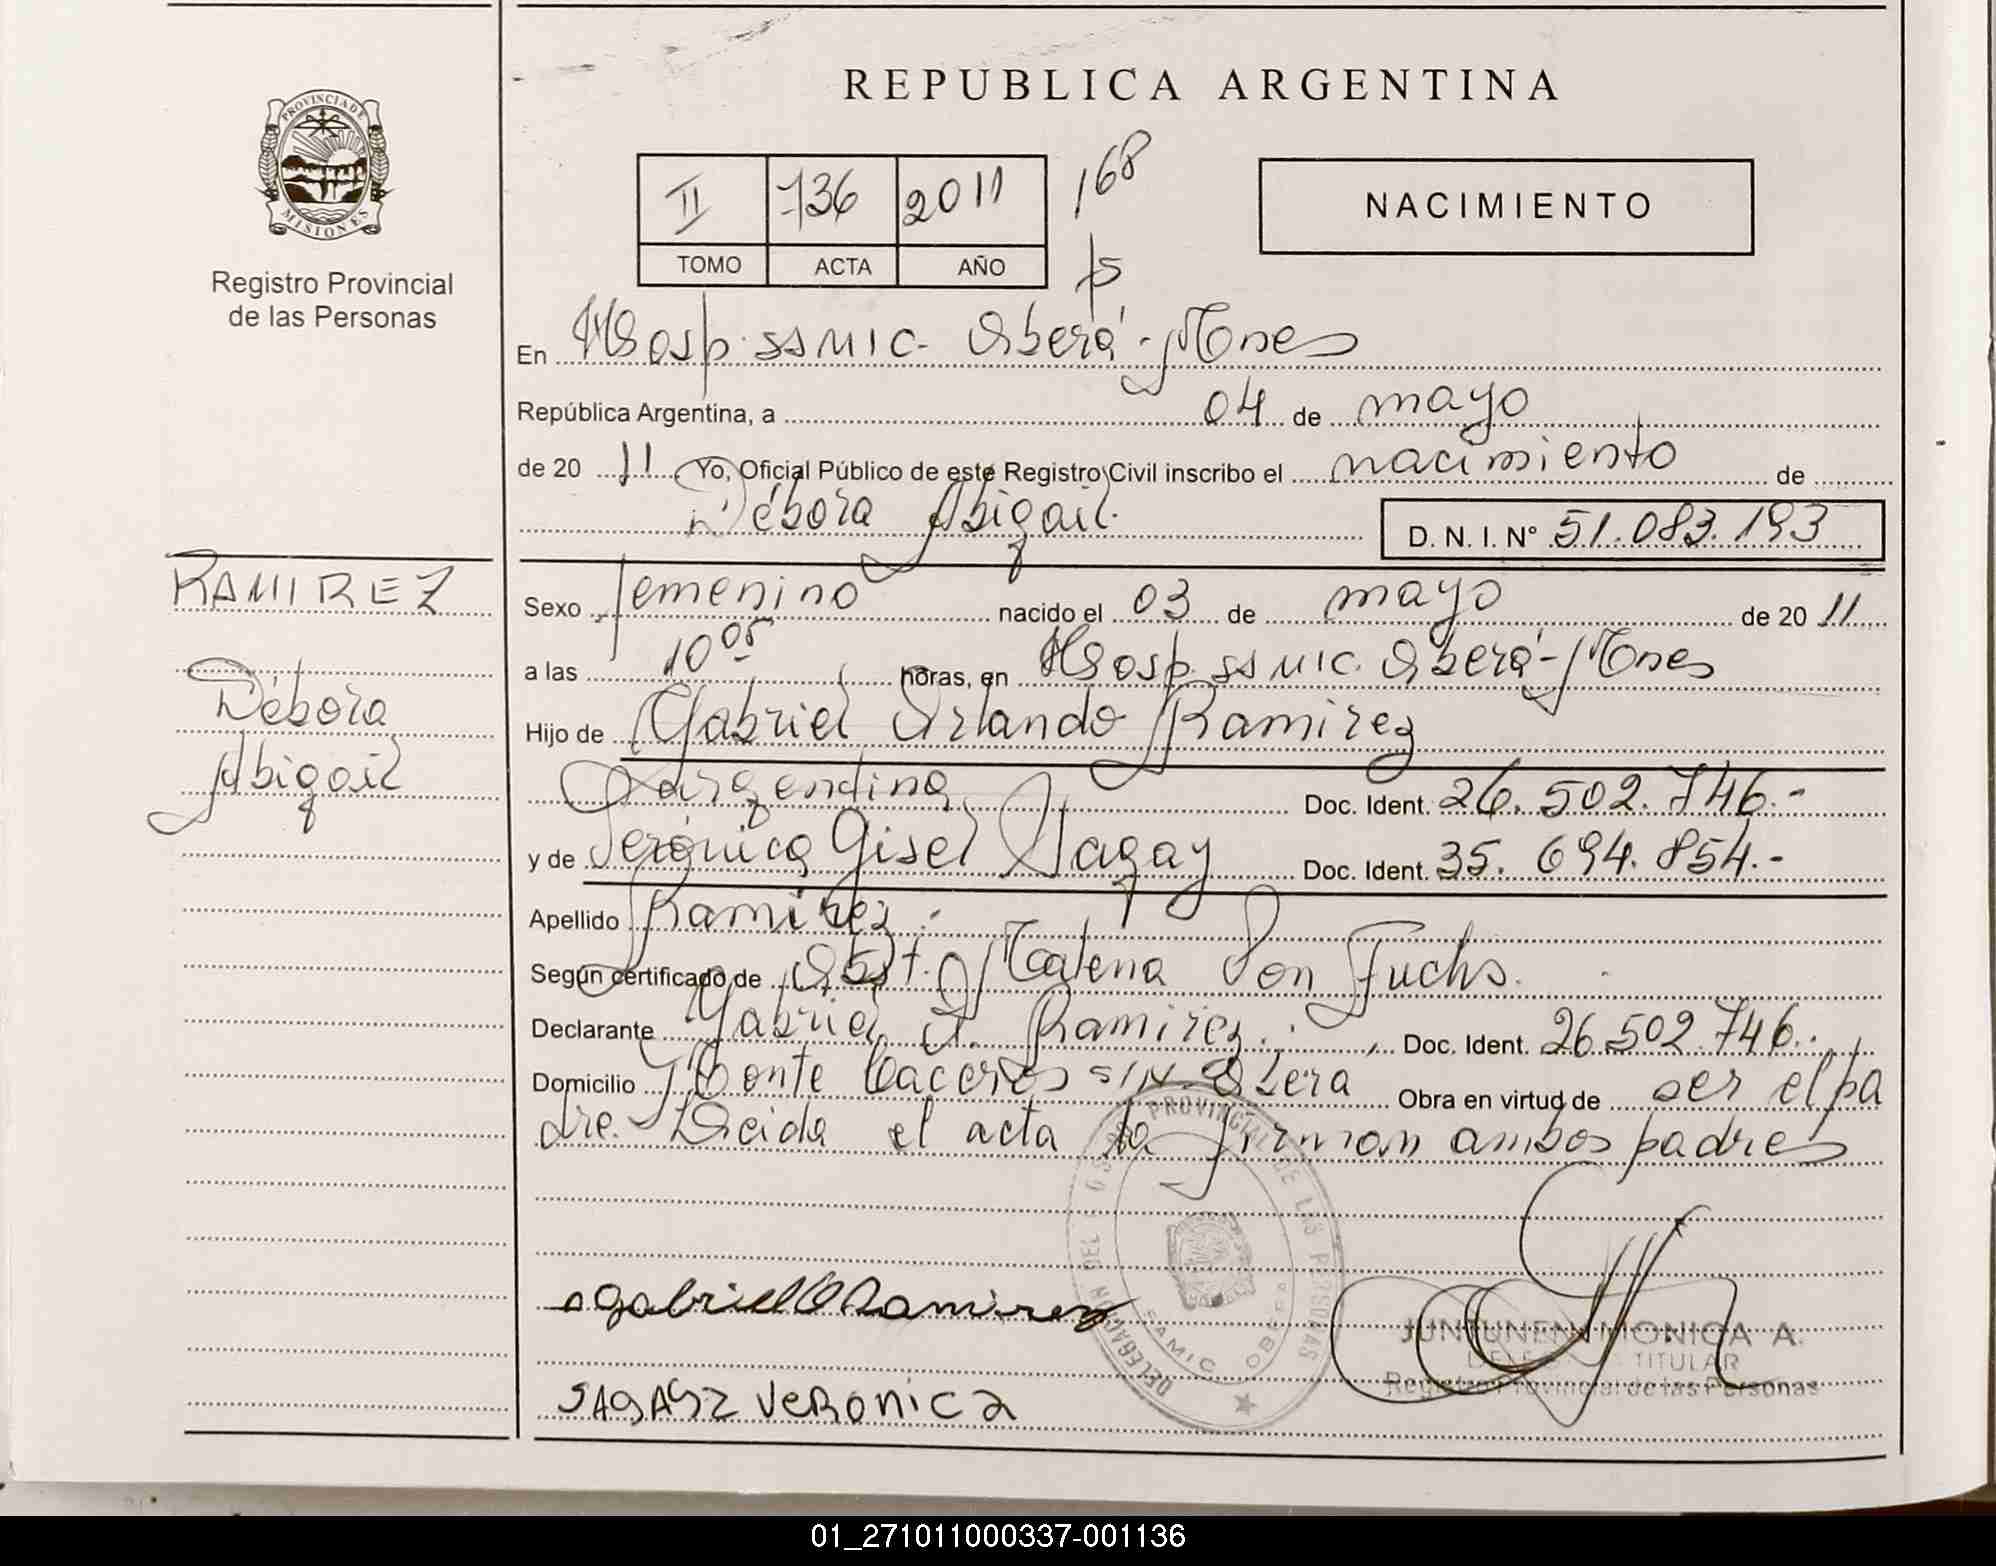 REPUBLICA ARGENTINA
PROVINCIA DE
MISIONES
Registro Provincial
de las Personas
II 736 2011 168
TOMO ACTA AÑO
NACIMIENTO
En Hosp. SSMIC. Oberá - Mnes
República Argentina, a 04 de mayo
de 2011 Yo, Oficial Público de este Registro Civil inscribo el nacimiento de
Débora Abigail. D. N. I. Nº 51.083.193
RAMIREZ
Débora
Abigail
Sexo femenino nacido el 03 de mayo de 2011
a las 10 05 horas, en Hosp. SSMIC. Oberá - Mnes
Hijo de Gabriel Orlando Ramirez
Argentina Doc. Ident. 26.502.746.-
y de Verónica Gisel Sagay Doc. Ident. 35.694.854.-
Apellido Ramirez.
Según certificado de Obst. Malena Von Fuchs.
Declarante Gabriel O. Ramirez. Doc. Ident. 26.502.746.
Domicilio Monte Caceros S/N Obera Obra en virtud de ser el pa
dre. Leida el acta la firman ambos padres
DELEGACIÓN DEL REGISTRO PROVINCIAL DE LAS PERSONAS
SAMIC OBERA
Gabriel O Ramirez
JUNTUNEN MONICA A.
TITULAR
Registro Provincial de las Personas
VERONICA
01_271011000337-001136